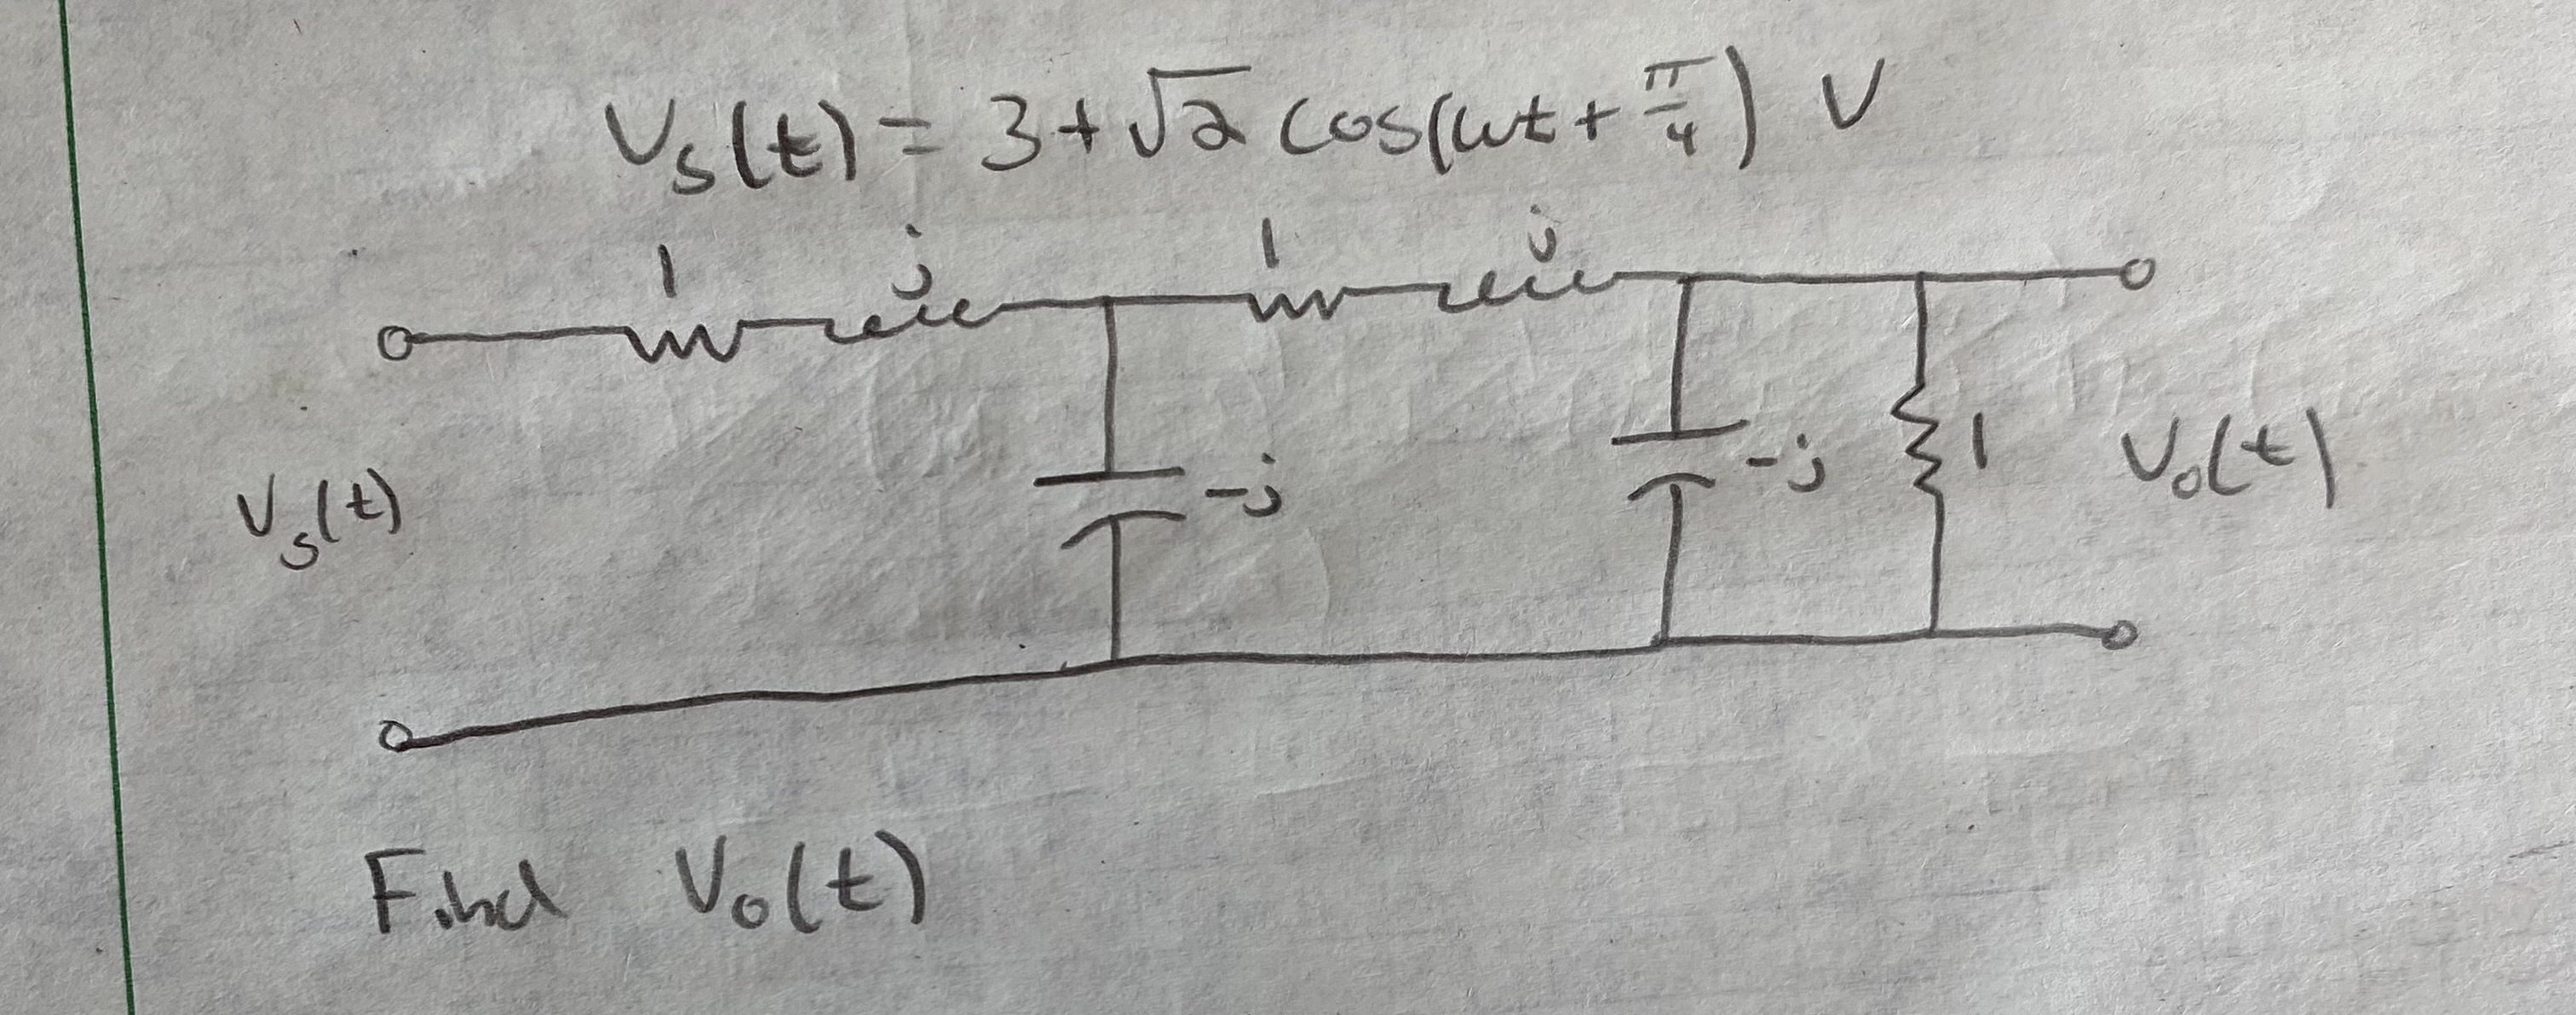 Vs(t) = 3 + √2 cos(ωt + π/4) V
1 j 1 j
Vs(t) -j -j 1 Vo(t)
Find Vo(t)